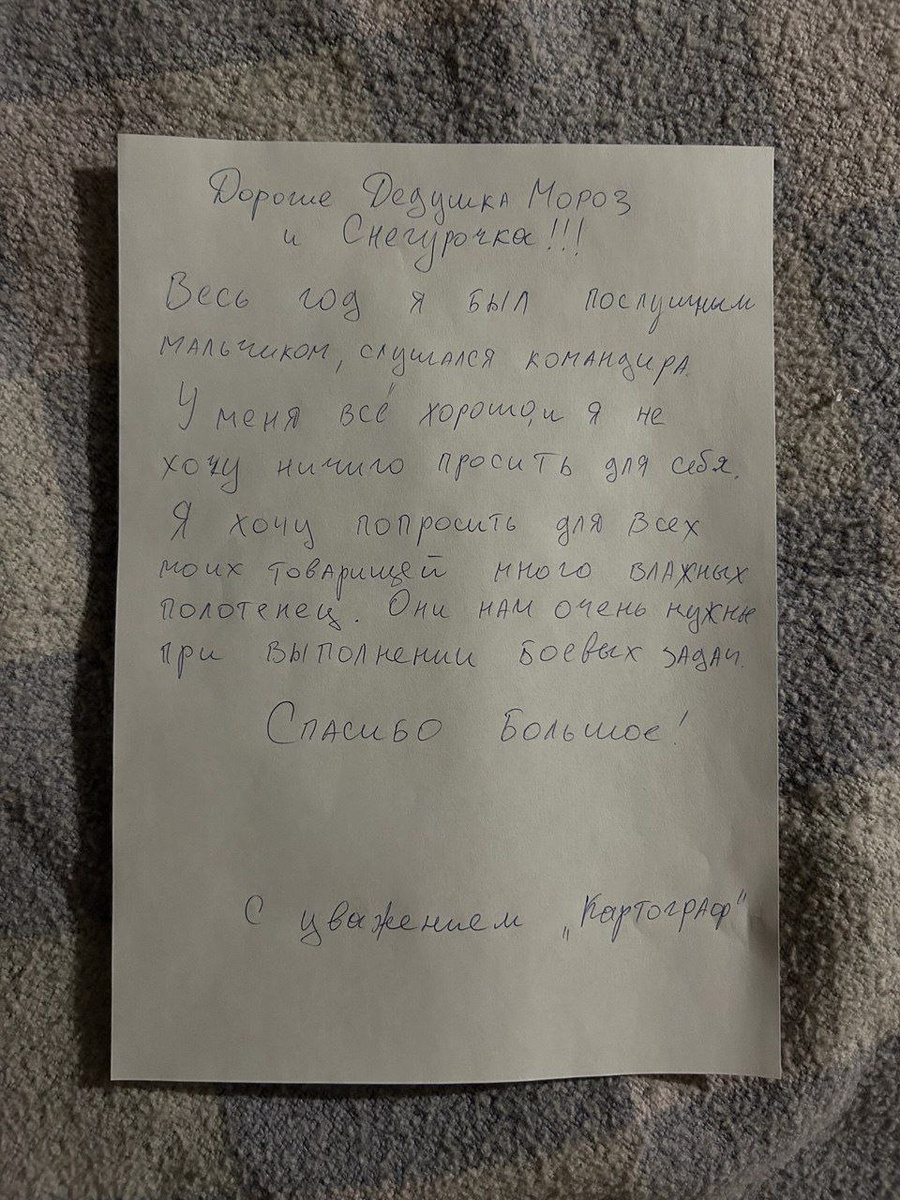 Дорогие Дедушка Мороз
и Снегурочка!!!
Весь год я был послушным
мальчиком, слушался командира.
У меня всё хорошо, и я не
хочу ничиго просить для себя.
Я хочу попросить для всех
моих товарищей много влажных
полотенец. Они нам очень нужны
при выполнении боевых задач.
Спасибо большое!
С уважением „Картограф"